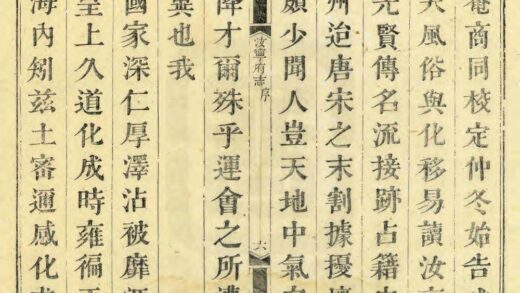 菴商同校定仲冬始告
天風俗與化移易讀汝
先賢傳名流接跡占籍
州迨唐宋之末割據擾
頗少聞人豈天地中氣
降才爾殊乎運會之所
汝寧府志 序 六
異也我
國家深仁厚澤沾被靡
至上久道化成時雍徧
海内矧茲土審邇感化